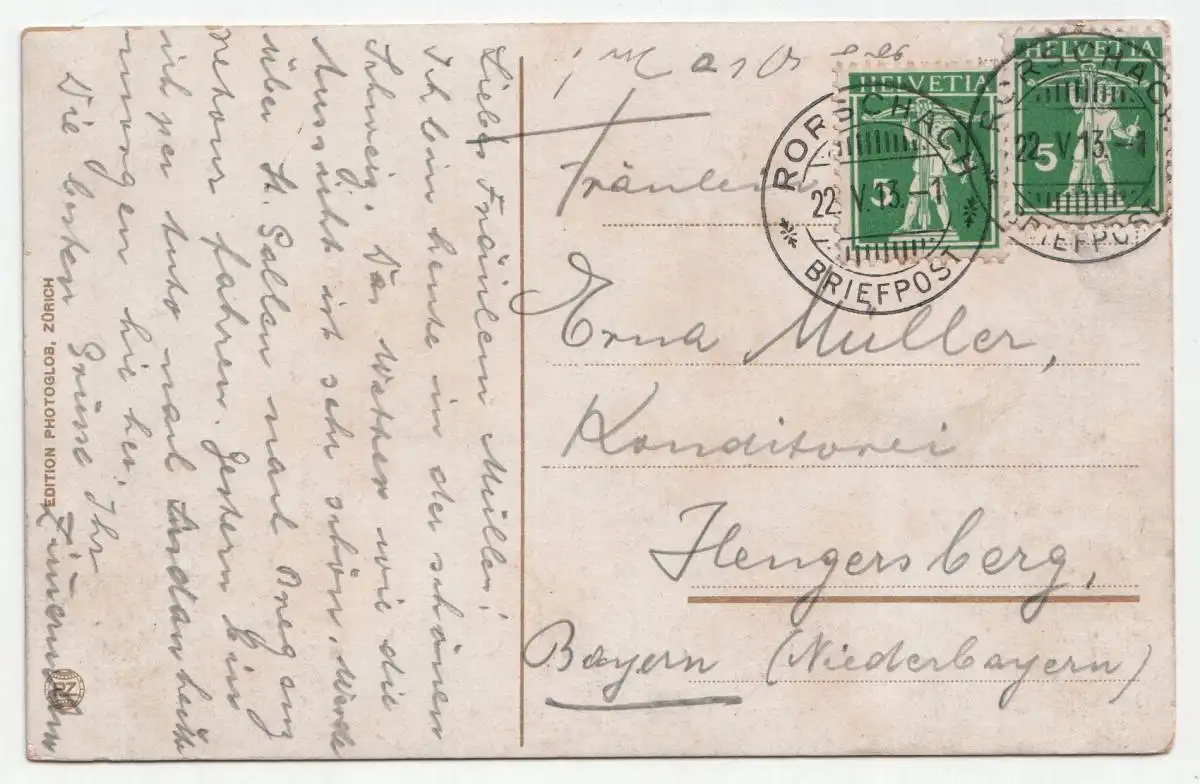 Liebes Fräulein Müller!
Ich bin heute in der schönen
Schweiz. Das Wetter wie die
Aussicht ist sehr schön. Werde
über St. Gallen nach Bregenz
retour fahren. Gestern bin
ich per Auto nach Lindau heute
morgen hieher.
Die besten Grüsse Ihr
EDITION PHOTOGLOB, ZÜRICH
PZ
Fräulein
Erna Müller,
Konditorei
Hengersberg,
Bayern (Niederbayern)
HELVETIA
5
RORSCHACH
22.V.13.–1
BRIEFPOST
HELVETIA
5
RORSCHACH
22.V.13.–1
BRIEFPOST